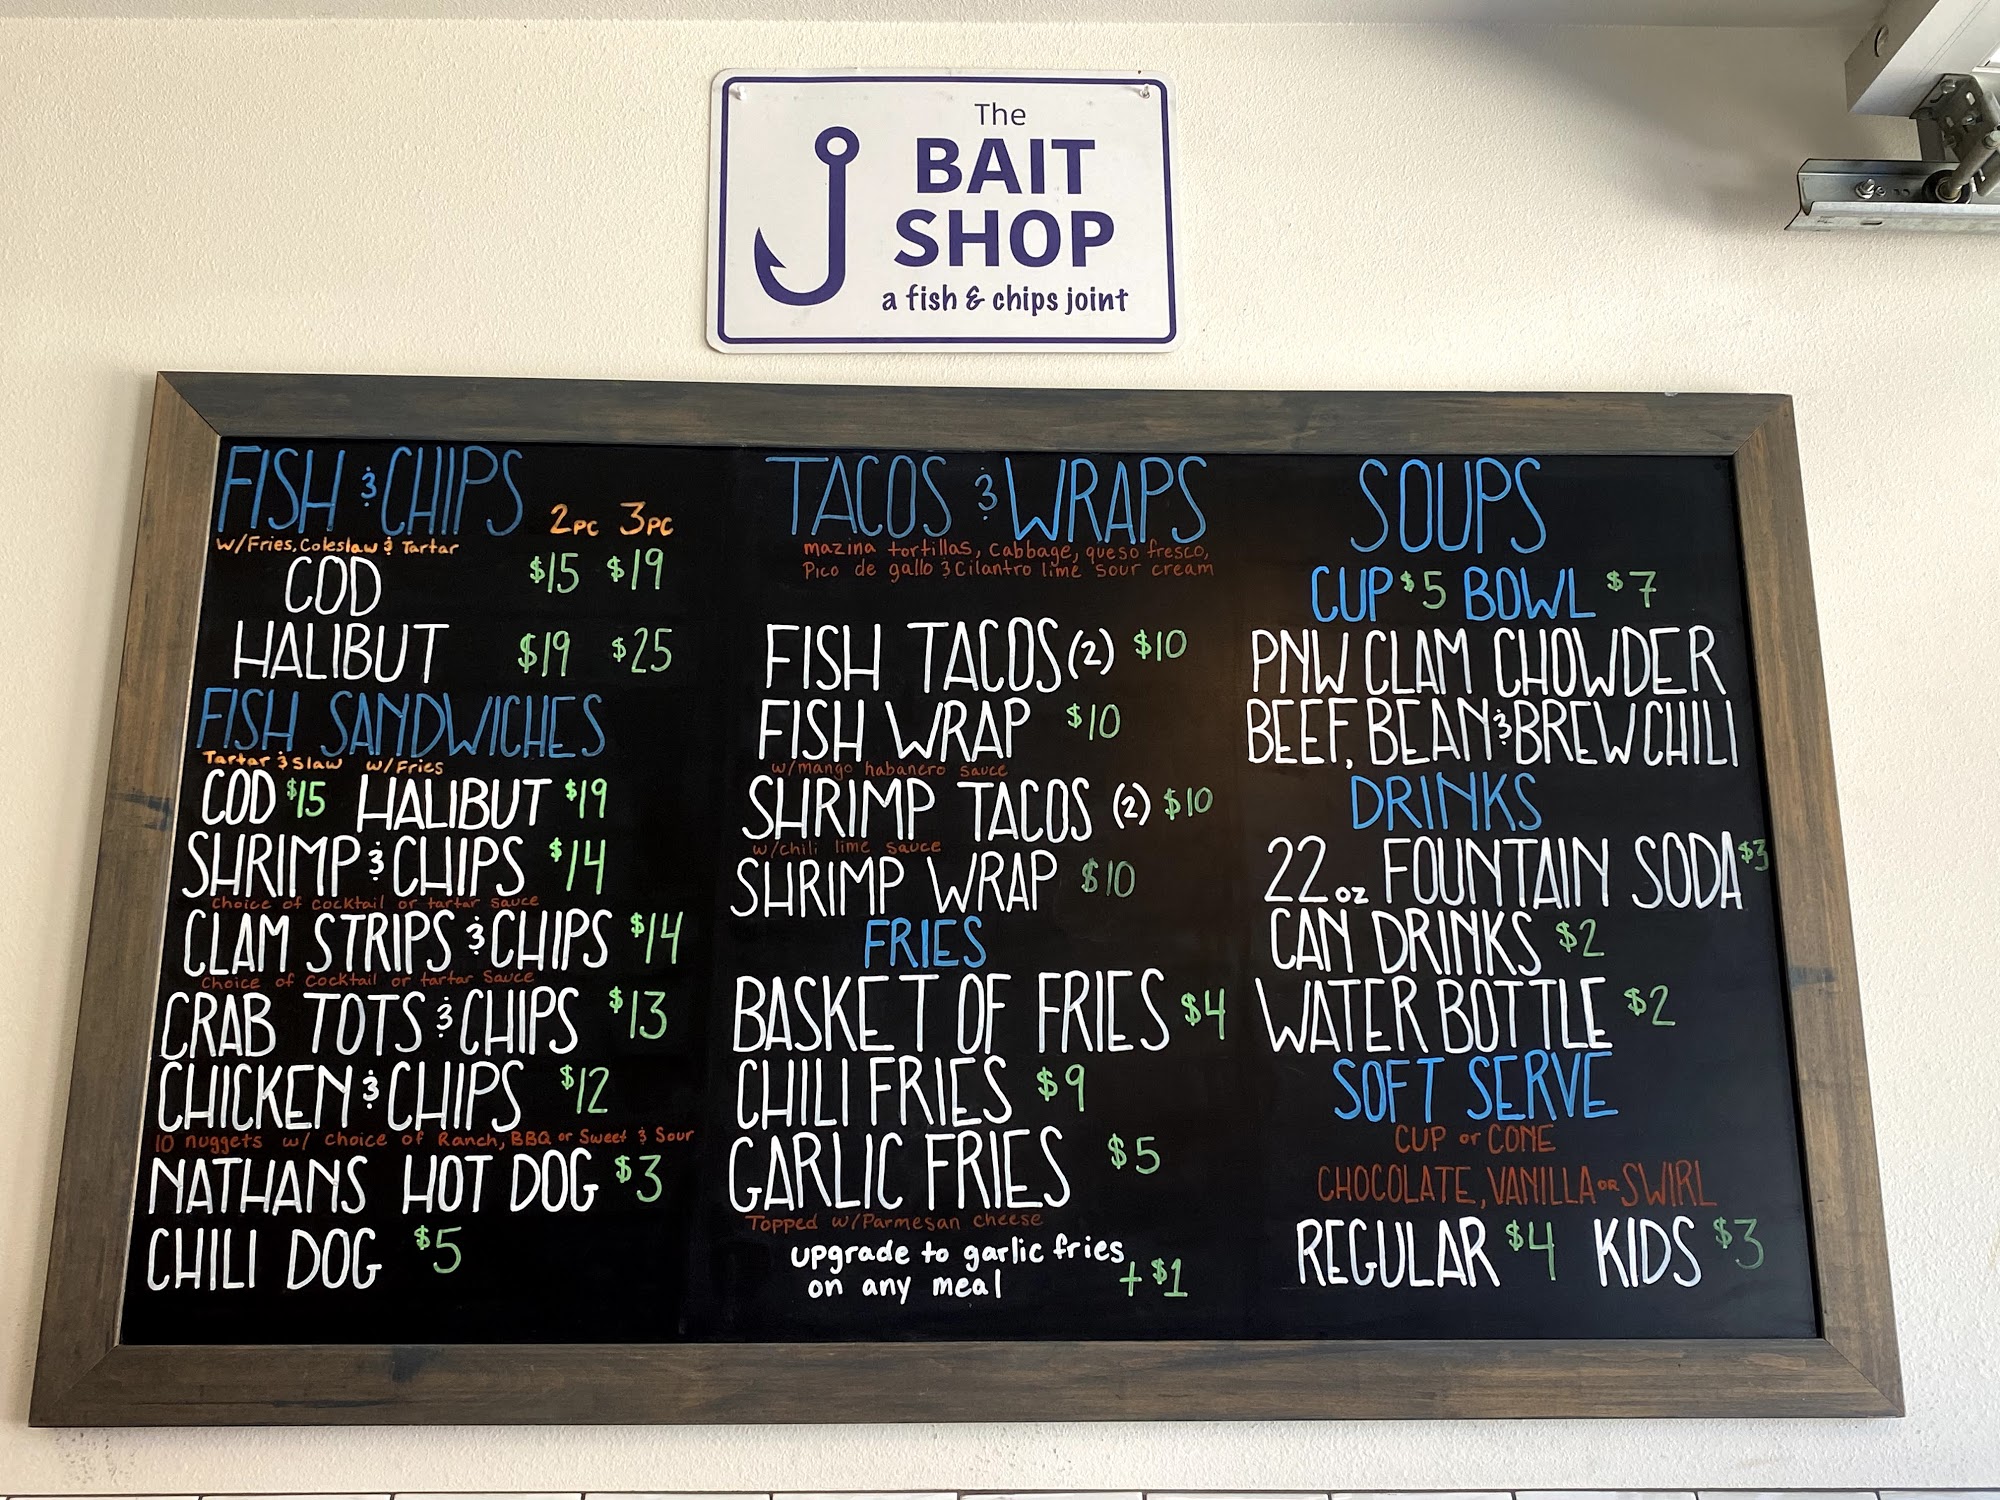 The
BAIT
SHOP
a fish & chips joint
FISH & CHIPS 2PC 3PC
w/Fries, Coleslaw & Tartar
COD $15 $19
HALIBUT $19 $25
FISH SANDWICHES
Tartar & Slaw w/Fries
COD $15 HALIBUT $19
SHRIMP & CHIPS $14
Choice of cocktail or tartar sauce
CLAM STRIPS & CHIPS $14
Choice of cocktail or tartar sauce
CRAB TOTS & CHIPS $13
CHICKEN & CHIPS $12
10 nuggets w/ choice of Ranch, BBQ or Sweet & Sour
NATHANS HOT DOG $3
CHILI DOG $5
TACOS & WRAPS
mazina tortillas, Cabbage, queso fresco,
Pico de gallo & Cilantro lime sour cream
FISH TACOS (2) $10
FISH WRAP $10
w/mango habanero sauce
SHRIMP TACOS (2) $10
w/chili lime sauce
SHRIMP WRAP $10
FRIES
BASKET OF FRIES $4
CHILI FRIES $9
GARLIC FRIES $5
Topped w/Parmesan cheese
upgrade to garlic fries
on any meal +$1
SOUPS
CUP $5 BOWL $7
PNW CLAM CHOWDER
BEEF, BEAN & BREW CHILI
DRINKS
22oz FOUNTAIN SODA $3
CAN DRINKS $2
WATER BOTTLE $2
SOFT SERVE
CUP or CONE
CHOCOLATE, VANILLA or SWIRL
REGULAR $4 KIDS $3